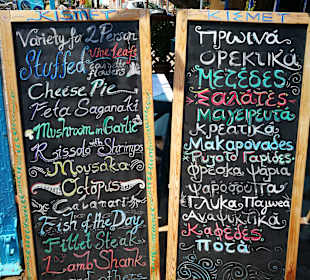 KISMET
Variety for 2 Person
Stuffed
Vine Leafs
Courgette
Flowers
Cheese Pie
Feta Saganaki
Mushroom in Garlic
Rissoto with Shrimps
Mousaka
Octopus
Calamari
Fish of the Day
Fillet Steak
Lamb Shank
others
KISMET
Πρωινά
Ορεκτικά
Μεζέδες
Σαλάτες
Μαγειρευτά
Κρεατικά
Μακαρονάδες
Ρυζότο Γαρίδες
Φρέσκα Ψάρια
Ψαρόσουπα
Γλυκά, Παγωτά
Αναψυκτικά
Καφέδες
Ποτά